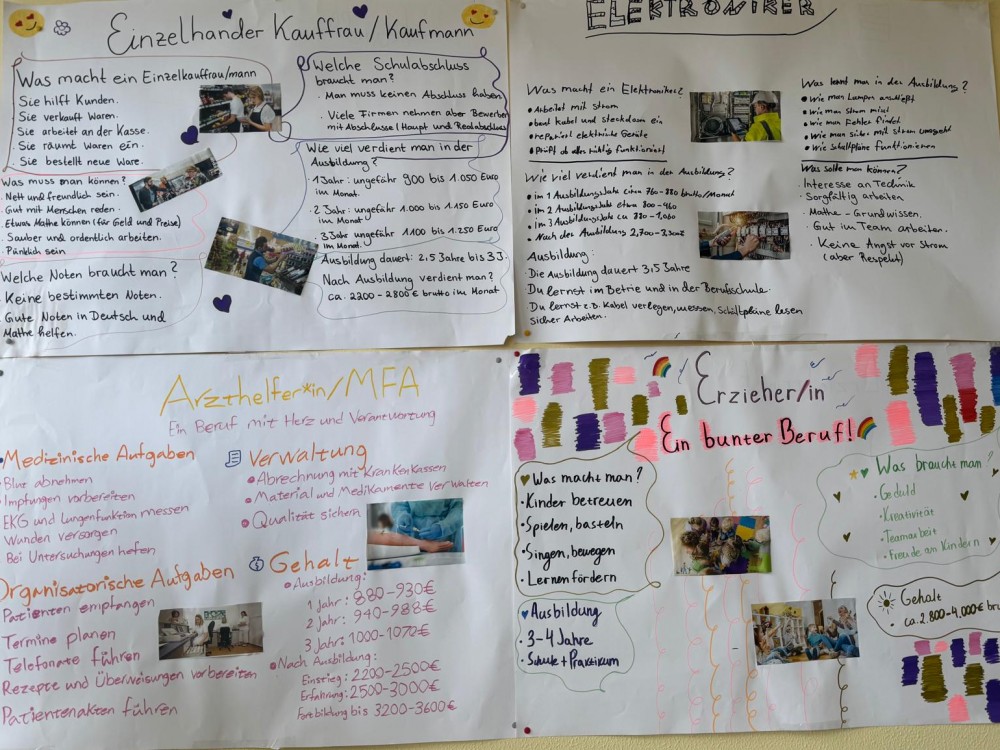 Einzelhander Kauffrau/Kaufmann
Was macht ein Einzelkauffrau/mann
Sie hilft Kunden.
Sie verkauft Waren.
Sie arbeitet an der Kasse.
Sie räumt Waren ein.
Sie bestellt neue Ware.
Was muss man können?
Nett und freundlich sein.
Gut mit Menschen reden.
Etwas Mathe können (für Geld und Preise)
Sauber und ordentlich arbeiten.
Pünklich sein
Welche Noten braucht man?
Keine bestimmten Noten.
Gute Noten in Deutsch und
Mathe helfen.
Welche Schulabschluss
braucht man?
Man muss keinen Abschluss haben
Viele Firmen nehmen aber Bewerber
mit Abschluss (Haupt und Realabschluss
Wie viel verdient man in der
Ausbildung?
1 Jahr: ungefähr 900 bis 1.050 Euro
im Monat.
2 Jahr: ungefähr 1.000 bis 1.150 Euro
im Monat
3 Jahr ungefähr 1100 bis 1.250 Euro
im Monat.
Ausbildung dauert: 2,5 Jahre bis 3J.
Nach Ausbildung verdient man?
ca. 2200 - 2800 € brutto im Monat
ELEKTRONIKER
Was macht ein Elektroniker?
• Arbeitet mit strom
• baut kabel und steckdosen ein
• repariert elektrische Geräte
• Prüft ob alles richtig funktioniert
Wie viel verdient man in der Ausbildung?
• im 1 Ausbildungsjahr circa 760-880 brutto/Monat
• im 2 Ausbildungsjahr etwa 800 - 960
• im 3 Ausbildungsjahr ca 880 - 1,060
• Nach der Ausbildung
Ausbildung:
Die Ausbildung dauert 3,5 Jahre
Du lernst im Betrie und in der Berufsschule.
Du lernst z.B. Kabel verlegen, messen, Schaltpläne lesen
Sicher Arbeiten.
Was lernt man in der Ausbildung?
• Wie man Lampen anschließt
• Wie man Strom misst
• Wie man Fehler findet
• Wie man sicher mit strom umgeht
• Wie schaltpläne funktionieren
Was sollte man können?
• Interesse an Technik
Sorgfältig arbeiten
• Mathe - Grundwissen.
• Gut im Team arbeiten.
• Keine Angst vor Strom
(aber Respekt)
Arzthelfer*in/MFA
Ein Beruf mit Herz und Verantwortung
Medizinische Aufgaben
Blut abnehmen
Impfungen vorbereiten
EKG und Lungenfunktion messen
Wunden versorgen
Bei Untersuchungen helfen
Organisatorische Aufgaben
Patienten empfangen
Termine planen
Telefonate führen
Rezepte und Überweisungen vorbereiten
Patientenakten führen
Verwaltung
• Abrechnung mit Krankenkassen
• Material und Medikamente verwalten
• Qualität sichern
Gehalt
• Ausbildung:
1 Jahr: 880-930€
2 Jahr: 940-988€
3 Jahr: 1000-1070€
• Nach Ausbildung:
Einstieg: 2200-2500€
Erfahrung: 2500-3000€
Fortbildung bis 3200-3600€
Erzieher/in
Ein bunter Beruf!
Was macht man?
• Kinder betreuen
• Spielen, basteln
• Singen, bewegen
• Lernen fördern
Ausbildung
• 3-4 Jahre
• Schule + Praktikum
Was braucht man?
• Geduld
• Kreativität
• Teamarbeit
• Freude an Kindern
Gehalt
• ca. 2.800-4.000€ bru